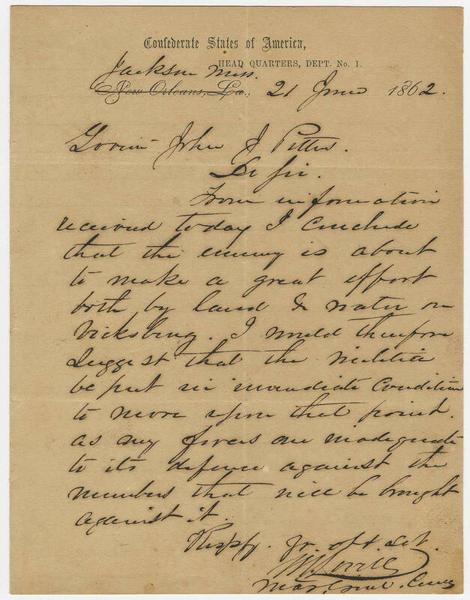 Confederate States of America,
HEAD QUARTERS, DEPT. No. 1.
Jackson Miss.
New Orleans, La., 21 June 1862.
Govnr John J Pettus.
Dr Sir.
From information
received today I conclude
that the enemy is about
to make a great effort
both by land & water on
Vicksburg. I would therefore
suggest that the militia
be put in immediate condition
to move upon that point.
as my forces are inadequate
to its defence against the
numbers that will be brought
against it.
Respy. Yr. obt. Svt.
M Lovell
Maj. Genl. Comg